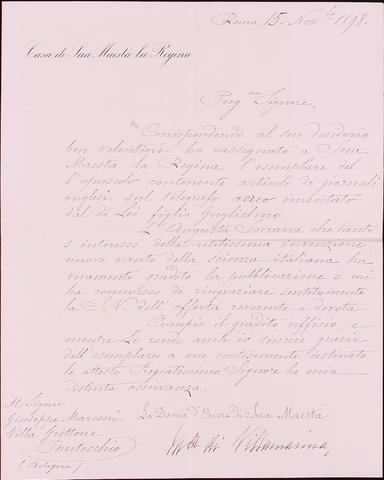 Roma, 15. Nov.bre 1898.
Casa di Sua Maestà la Regina
Preg.mo Signore,
Corrispondendo al suo desiderio
ben volentieri ho rassegnato a Sua
Maestà la Regina l'esemplare del-
l'opuscolo contenente articoli di giornali
inglesi sul telegrafo aereo inventato
dal di Lei figlio Guglielmo.
L'Augusta Sovrana che tanto
s'interessò della utilissima invenzione
nuovo vanto della scienza italiana ha
vivamente gradito la pubblicazione e mi
ha commesso di ringraziare sentitamente
la S. V. dell'offerta reverente e devota.
Compio il gradito ufficio, e
mentre Le rendo anch'io sincere grazie
dell'esemplare a me cortesemente destinato
le attesto Pregiatissimo Signore la mia
distinta osservanza.
La Dama d'Onore di Sua Maestà
di Villamarina
Al Signor
Giuseppe Marconi
Villa Griffone
Pontecchio
(Bologna)